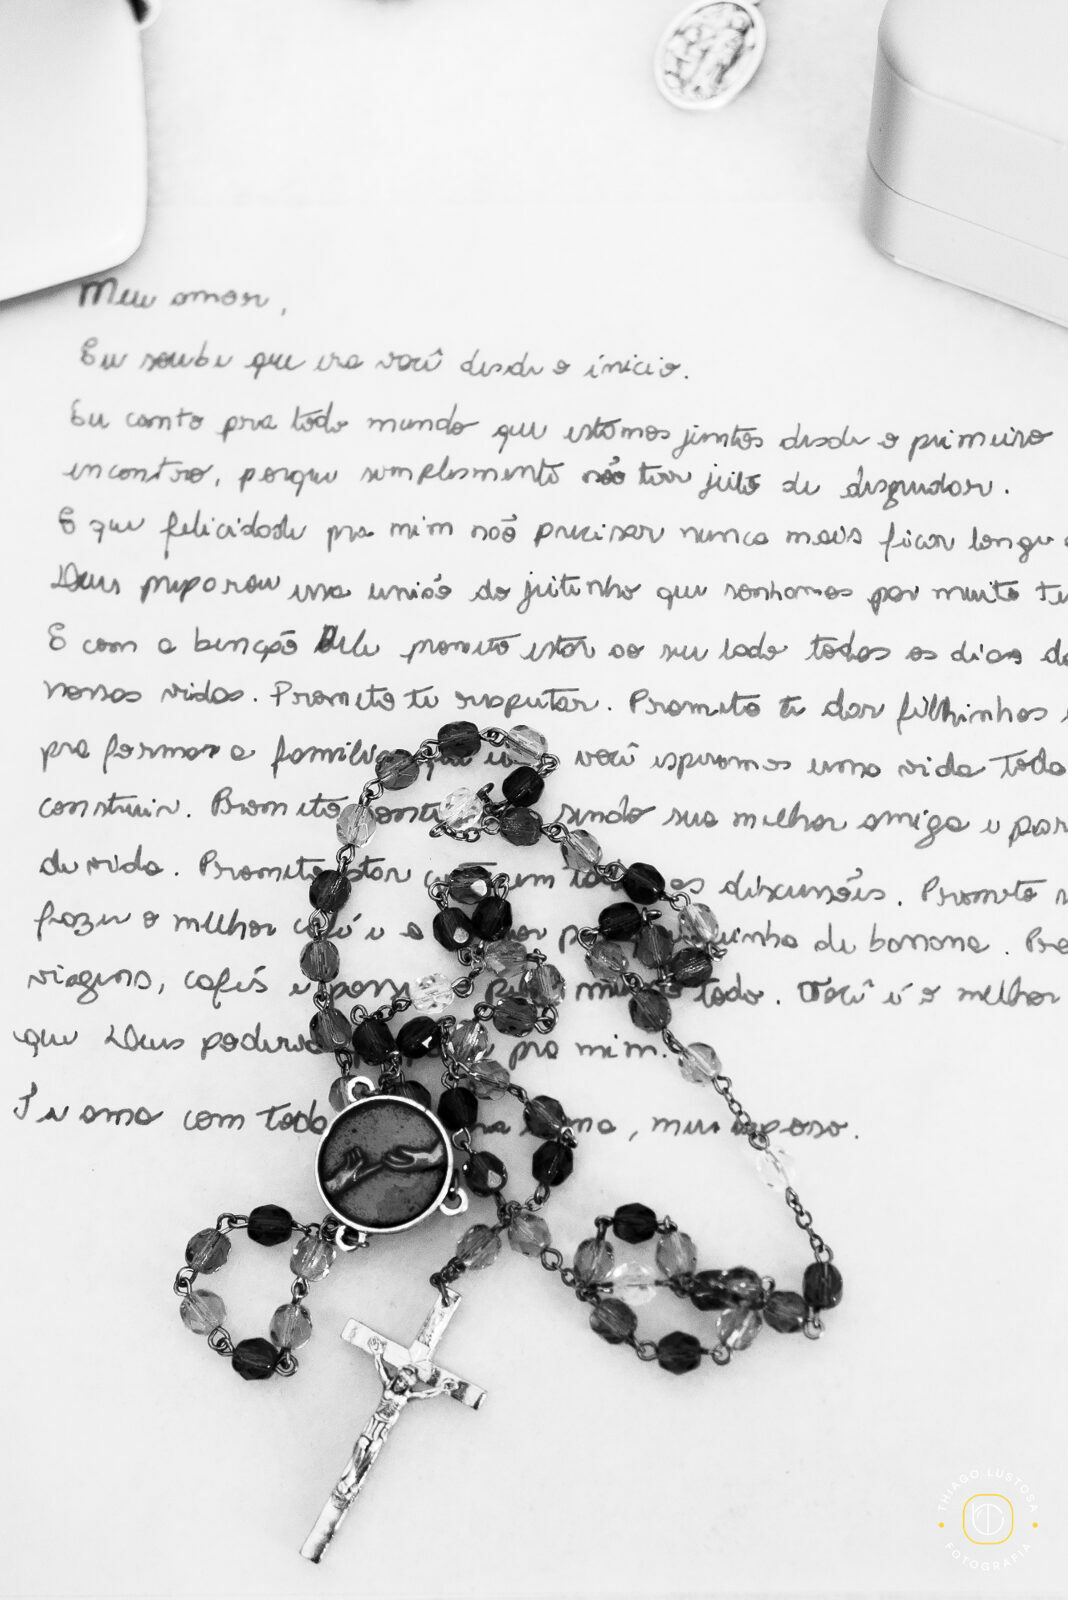 Meu amor,
Eu soube que era você desde o início.
Eu conto pra todo mundo que estamos juntos desde o primeiro
encontro, porque simplesmente não teve jeito de desgrudar.
E que felicidade pra mim não precisar nunca mais ficar longe
Deus preparou essa união do jeitinho que sonhamos por muito
E com a benção Dele prometo estar ao seu lado todos os dias
nossas vidas. Prometo te respeitar. Prometo te dar filhinhos
pra formar a família que você esperamos uma vida toda
construir. Prometo sendo sua melhor amiga e
de vida. Prometo estar em as discussões. Prometo
fazer o melhor café e o de banana.
viagens, cafés e todo. Você é o melhor
que Deus poderia pra mim.
Te amo com toda , meu esposo.
THIAGO LUSTOSA
FOTOGRAFIA